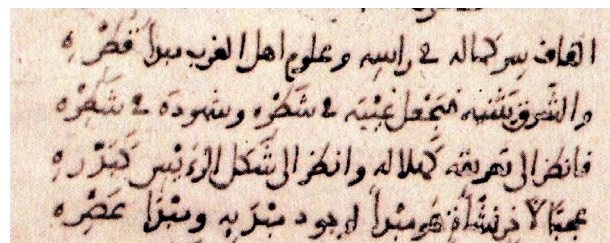 القاف سر كماله في راسه وعلوم اهل الغرب مبدأ قطره
والشوق يثنيه فيجعل غيبه في شطره وشهوده في شطره
فانظر الى تعريقه كهلاله وانظر الى شكل الرءيس كبدره
عجبا لاخر نشأة هو مبدأ لوجود مبديه ومبدأ عصره